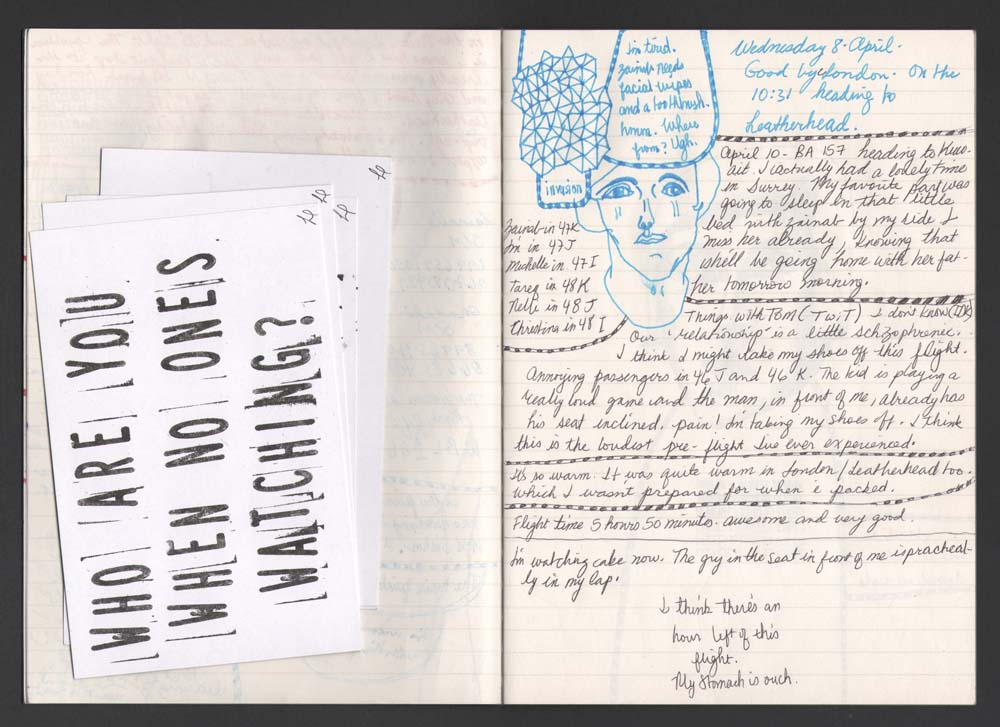 WHO ARE YOU
WHEN NO ONES
WATCHING?
I'm tired.
Zainab needs
facial wipes
and a toothbrush.
hmmm. Where
from? Ugh.
invasion
Wednesday 8. April.
Good bye London. On the
10:31 heading to
Leatherhead.
April 10 - BA 157 heading to Kuw-
ait. I actually had a lovely time
in Surrey. My favorite part was
going to sleep in that little
bed with Zainab by my side I
miss her already, knowing that
she'll be going home with her fat-
her tomorrow morning.
Zainab in 47K
I'm in 47J
Michelle in 47I
Tareq in 48K
Nelli in 48J
Christina in 48I
Things with TOM (TWIT) I don't know (IDK)
Our "relationship" is a little schzophrenic.
I think I might take my shoes off this flight.
Annoying passengers in 46J and 46K. The kid is playing a
really loud game and the man, in front of me, already has
his seat inclined. pain! I'm taking my shoes off. I think
this is the loudest pre-flight I've ever experienced.
It's so warm. It was quite warm in London/Leatherhead too.
Which I wasn't prepared for when i packed.
Flight time 5 hours 50 minutes. awesome and very good.
I'm watching cake now. The guy in the seat in front of me is pracheal-
ly in my lap.
I think there's an
hour left of this
flight.
My stomach is ouch.